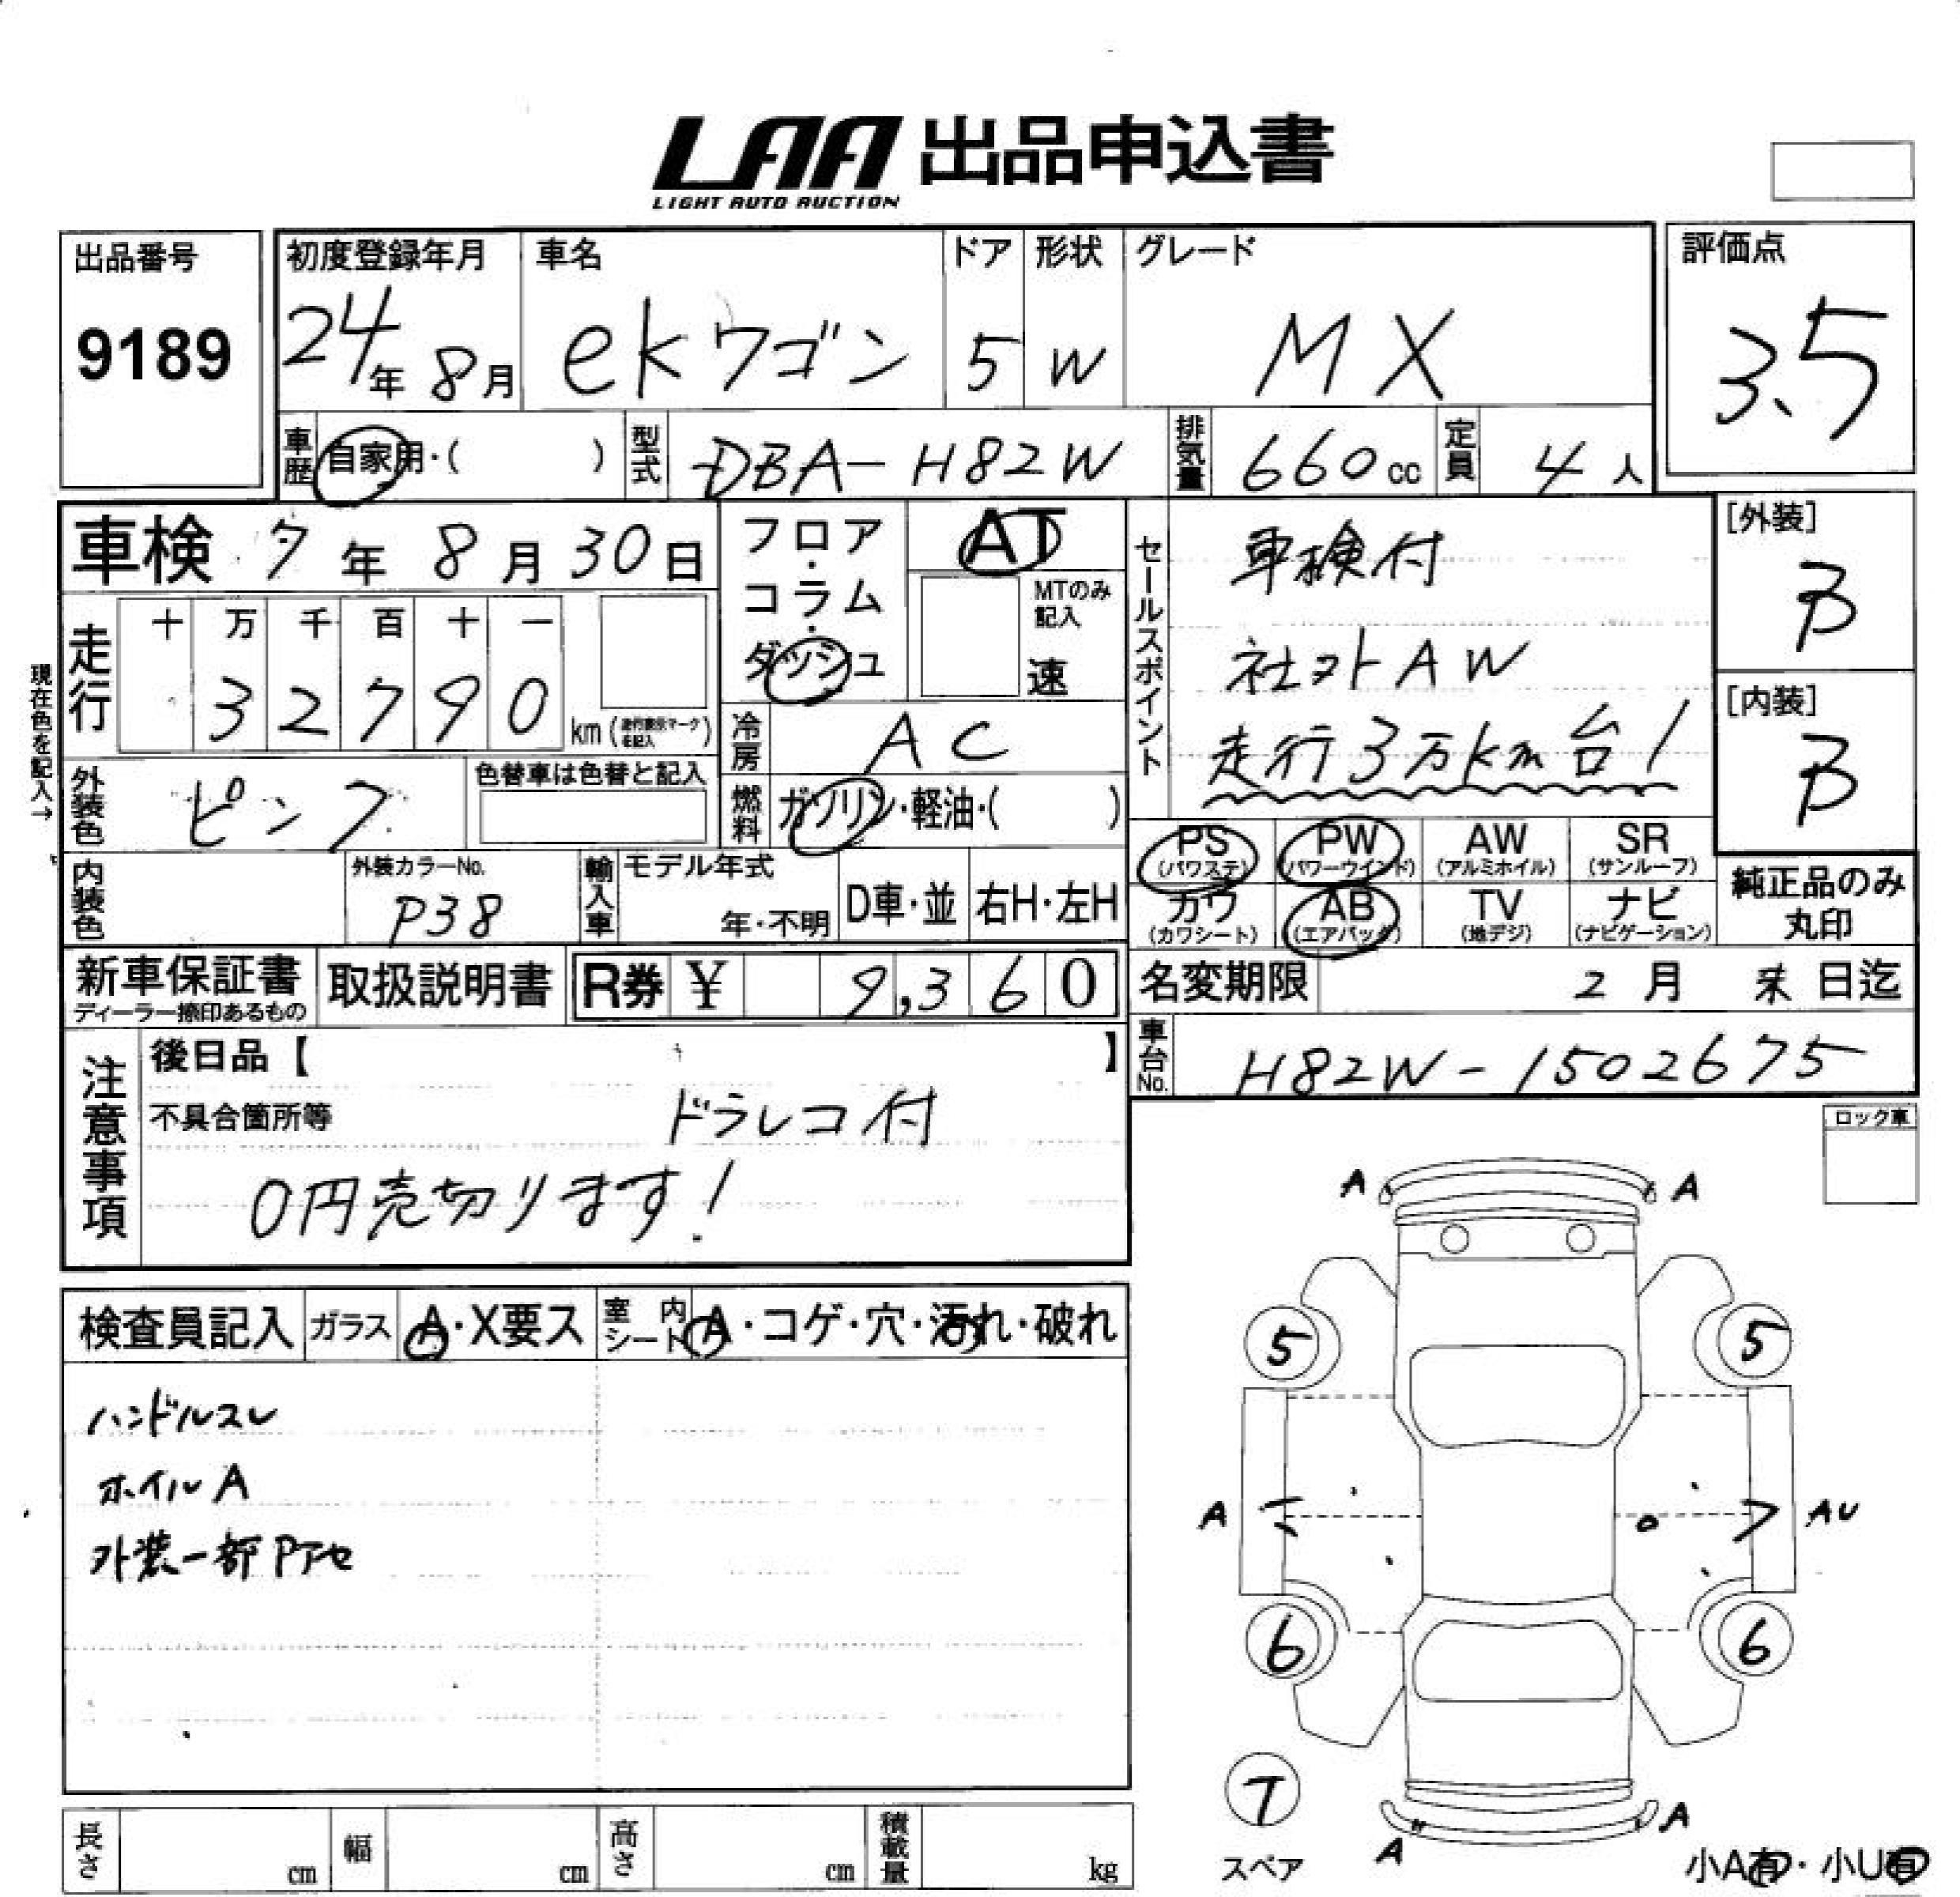 LAA 出品申込書
LIGHT AUTO AUCTION
出品番号
9189
初度登録年月
24年 8月
車名
ekワゴン
ドア
5
形状
W
グレード
MX
評価点
3.5
車歴
自家用・( )
型式
DBA-H82W
排気量
660cc
定員
4人
車検 7年 8月 30日
走行
十 万 千 百 十 一
3 2 7 9 0
km (走行表示マークを記入)
現在色を記入→
フロア・コラム・ダッシュ
AT
MTのみ記入
速
冷房
AC
燃料
ガソリン・軽油・( )
セールスポイント
車検付
社外AW
走行3万km台!
[外装]
B
[内装]
B
外装色
ピンク
色替車は色替と記入
内装色
外装カラーNo.
P38
輸入車
モデル年式
年・不明
D車・並
右H・左H
PS (パワステ)
PW (パワーウインド)
AW (アルミホイル)
SR (サンルーフ)
カワ (カワシート)
AB (エアバック)
TV (地デジ)
ナビ (ナビゲーション)
純正品のみ丸印
新車保証書
ディーラー捺印あるもの
取扱説明書
R券 ¥ 9,360
名変期限 2月 末日迄
車台No.
H82W-1502675
注意事項
後日品【 】
不具合箇所等
ドラレコ付
0円売切ります!
ロック車
検査員記入
ガラス
A・X要ス
室内シート
A・コゲ・穴・汚れ・破れ
ハンドルスレ
ホイルA
外装一部Pアセ
A A
5 5
A AU
6 6
T
スペア
A A
小A有・小U有
長さ cm
幅 cm
高さ cm
積載量 kg